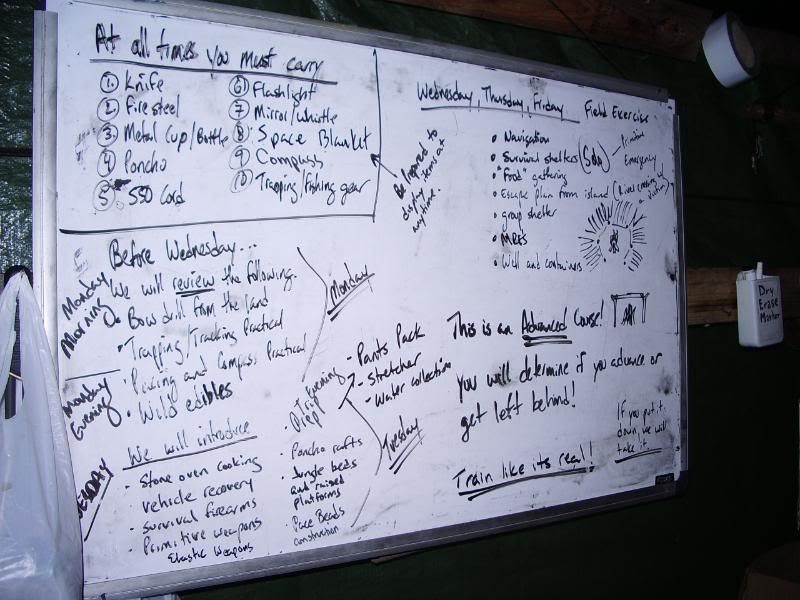 At all times you must carry
① Knife
② Firesteel
③ Metal Cup/Bottle
④ Poncho
⑤ 550 Cord
⑥ Flashlight
⑦ Mirror/whistle
⑧ Space Blanket
⑨ Compass
⑩ Trapping/fishing gear
Be prepared to
display items at
anytime.
Wednesday, Thursday, Friday Field Exercise
• Navigation
• Survival shelters (Solo)
Primitive
Emergency
• "Food" gathering
• Escape plan from island (River crossing w/
• group shelter
• MREs
• Well and containers
Before Wednesday...
Monday
Morning
We will review the following.
• Bow drill from the land
• Trapping/Tracking Practical
• Pacing and Compass Practical
• Wild edibles
Monday
Monday
Evening
We will introduce
• Stone oven cooking
• vehicle recovery
• Survival firearms
• Primitive weapons
Elastic Weapons
Evening
Trip
Prep
- Pants Pack
- Stretcher
- Water collection
• Poncho rafts
• Jungle beds
and raised
platforms
• Pace Beads
construction
Tuesday
This is an Advanced Course!
You will determine if you advance or
get left behind!
Train like its real!
If you put it
down, we will
take it.
Dry
Erase
Marker